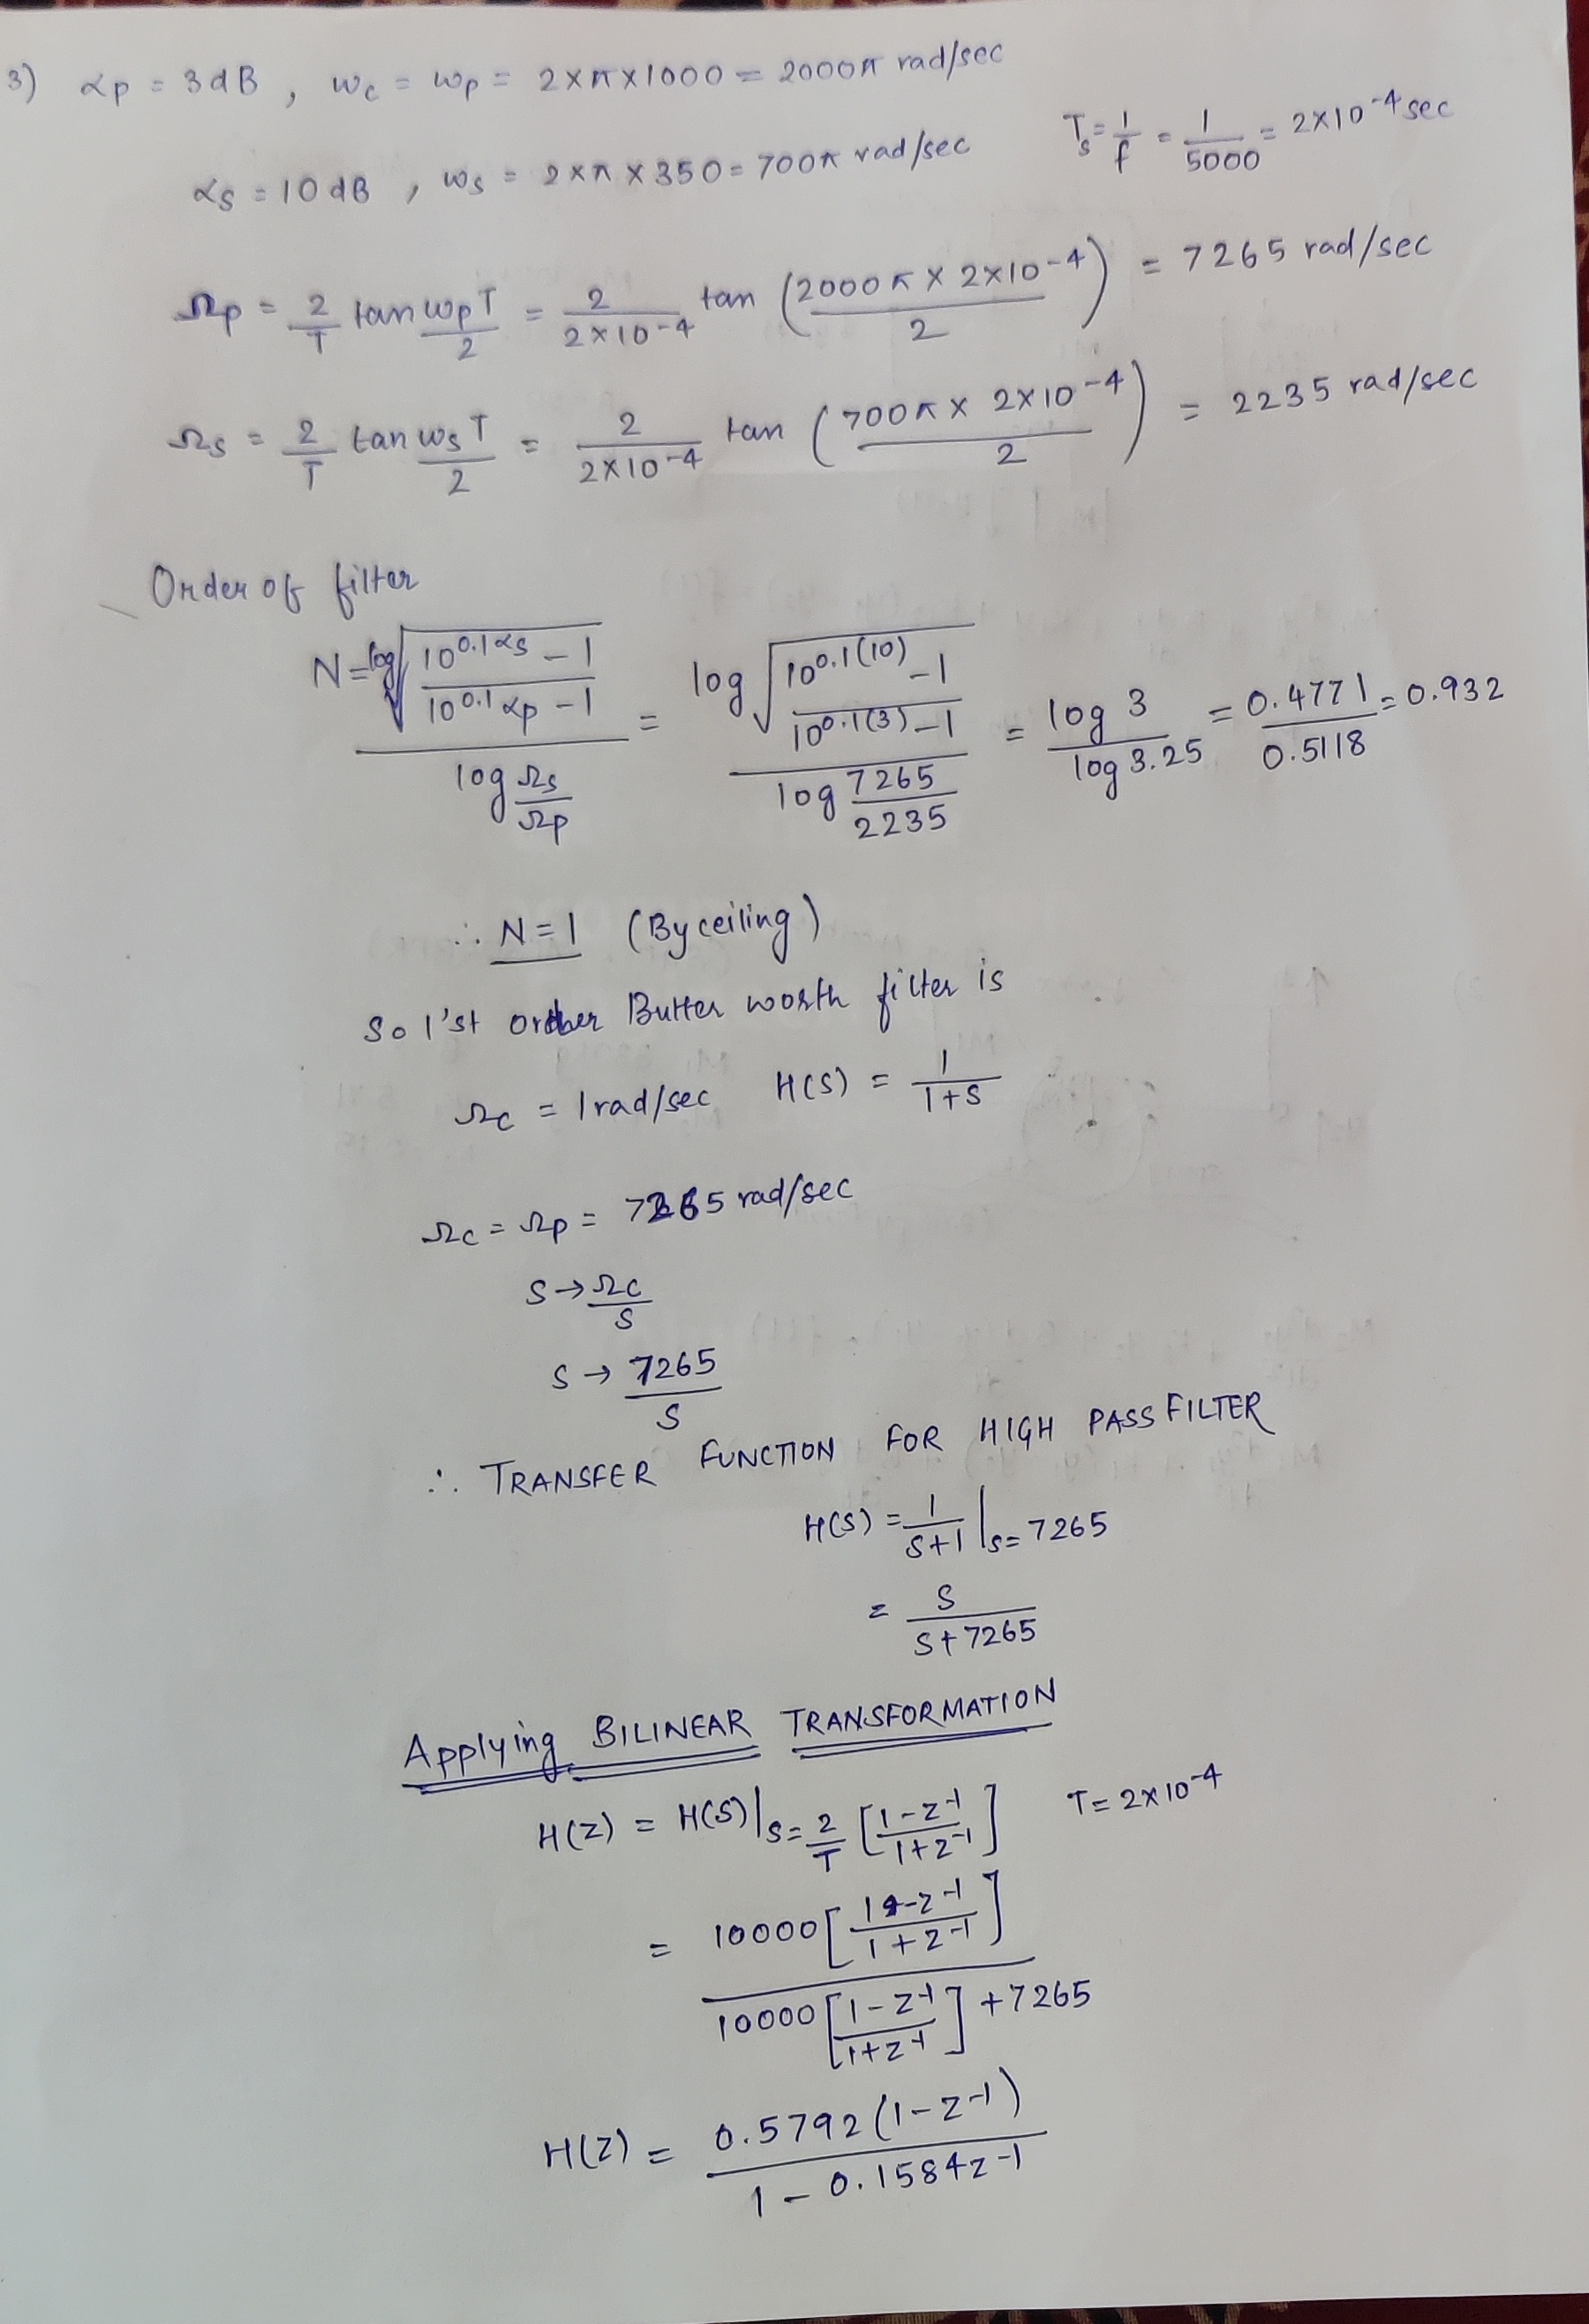 3) αp = 3dB , wc = wp = 2×π×1000 = 2000π rad/sec
αs = 10dB , ws = 2×π×350 = 700π rad/sec Ts = 1/f = 1/5000 = 2×10^-4 sec
Ωp = 2/T tan wpT/2 = 2/(2×10^-4) tan (2000π × 2×10^-4 / 2) = 7265 rad/sec
Ωs = 2/T tan wsT/2 = 2/(2×10^-4) tan (700π × 2×10^-4 / 2) = 2235 rad/sec
Order of filter
N = log √((10^0.1αs - 1)/(10^0.1αp - 1)) / log Ωs/Ωp = log √((10^0.1(10) - 1)/(10^0.1(3) - 1)) / log 7265/2235 = log 3 / log 3.25 = 0.4771/0.5118 = 0.932
∴ N = 1 (By ceiling)
So 1'st order Butter worth filter is
Ωc = 1rad/sec H(S) = 1/(1+S)
Ωc = Ωp = 7265 rad/sec
S → Ωc/S
S → 7265/S
∴ TRANSFER FUNCTION FOR HIGH PASS FILTER
H(S) = 1/(S+1) |s= 7265
= S/(S+7265)
Applying BILINEAR TRANSFORMATION
H(Z) = H(S)|s= 2/T [(1-z^-1)/(1+z^-1)] T= 2×10^-4
= 10000[(1-z^-1)/(1+z^-1)] / (10000[(1-z^-1)/(1+z^-1)] + 7265)
H(Z) = 0.5792(1-z^-1) / (1 - 0.1584z^-1)